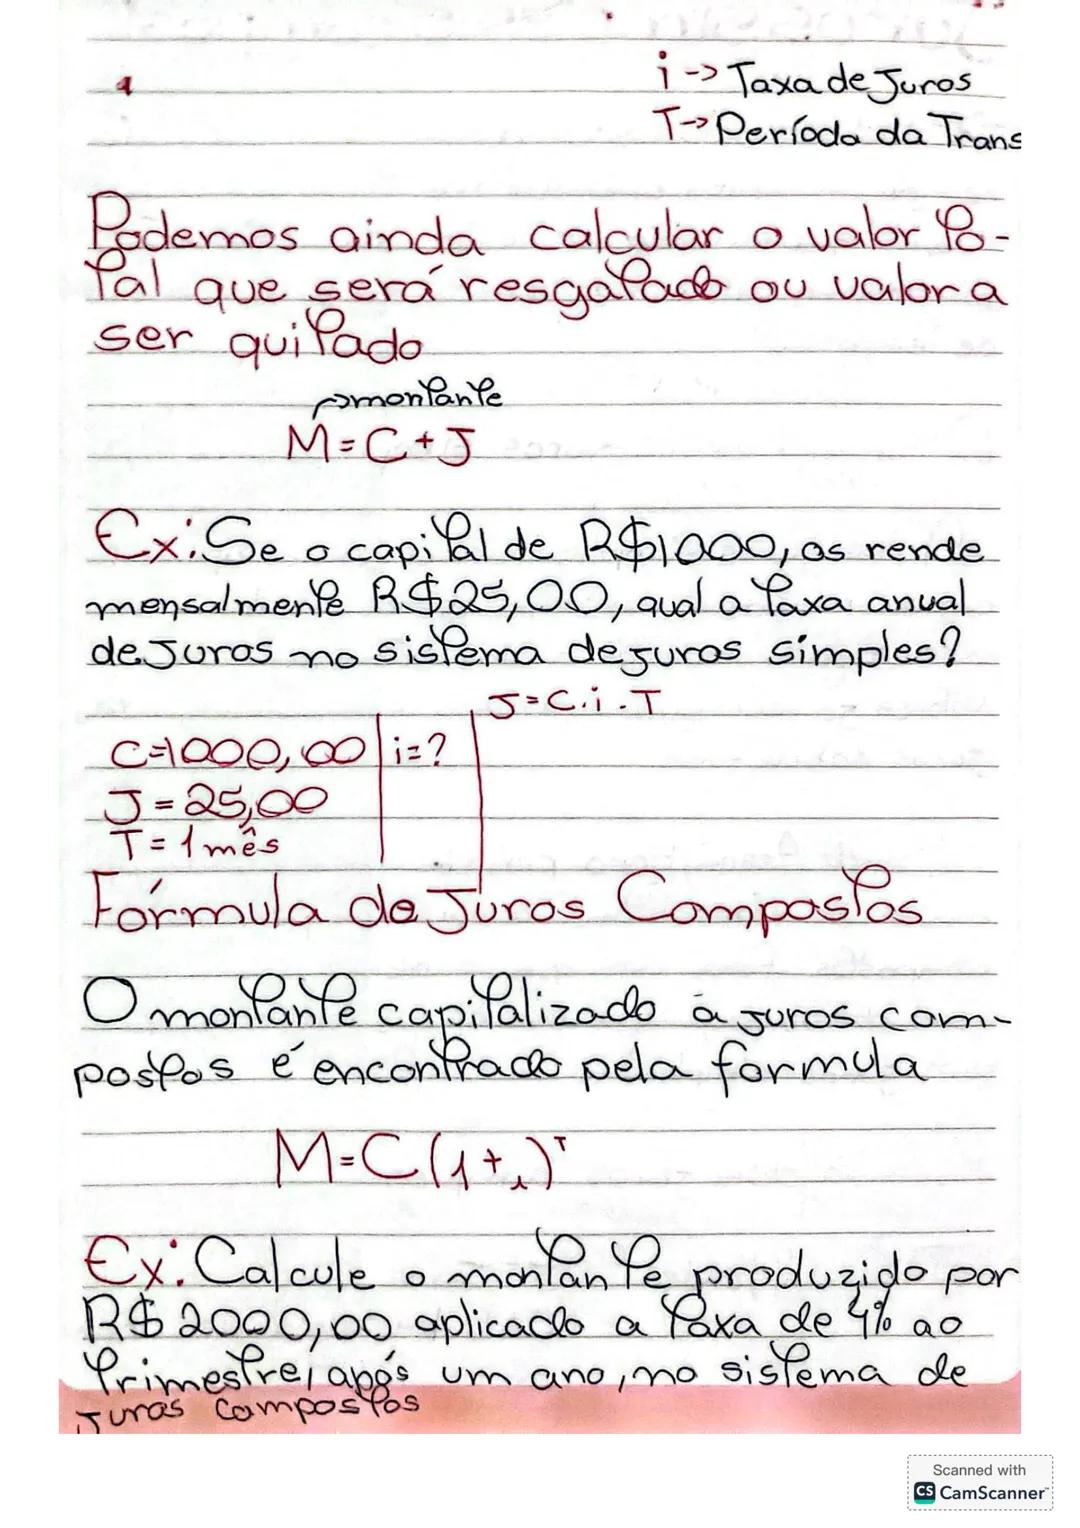 i -> Taxa de Juros
T-> Períoda da Trans
Podemos ainda calcular o valor to-
tal que será resgatado ou valor a
ser quitado
montante
M = C + J
Ex: Se o capital de R$1000,00 rende
mensalmente R$25,00, qual a taxa anual
de Juros no sistema de juros simples?
J = C.i.T
C=1000,00 i=?
J = 25,00
T = 1 mês
Fórmula de Juros Compostos
O montante capitalizado à juros com-
postos é encontrado pela formula
M=C(1+i)ᵀ
Ex: Calcule o montante produzido por
R$ 2000,00 aplicado a taxa de 4% ao
trimestre, após um ano, no sistema de
Juros Compostos
Scanned with
CS CamScanner